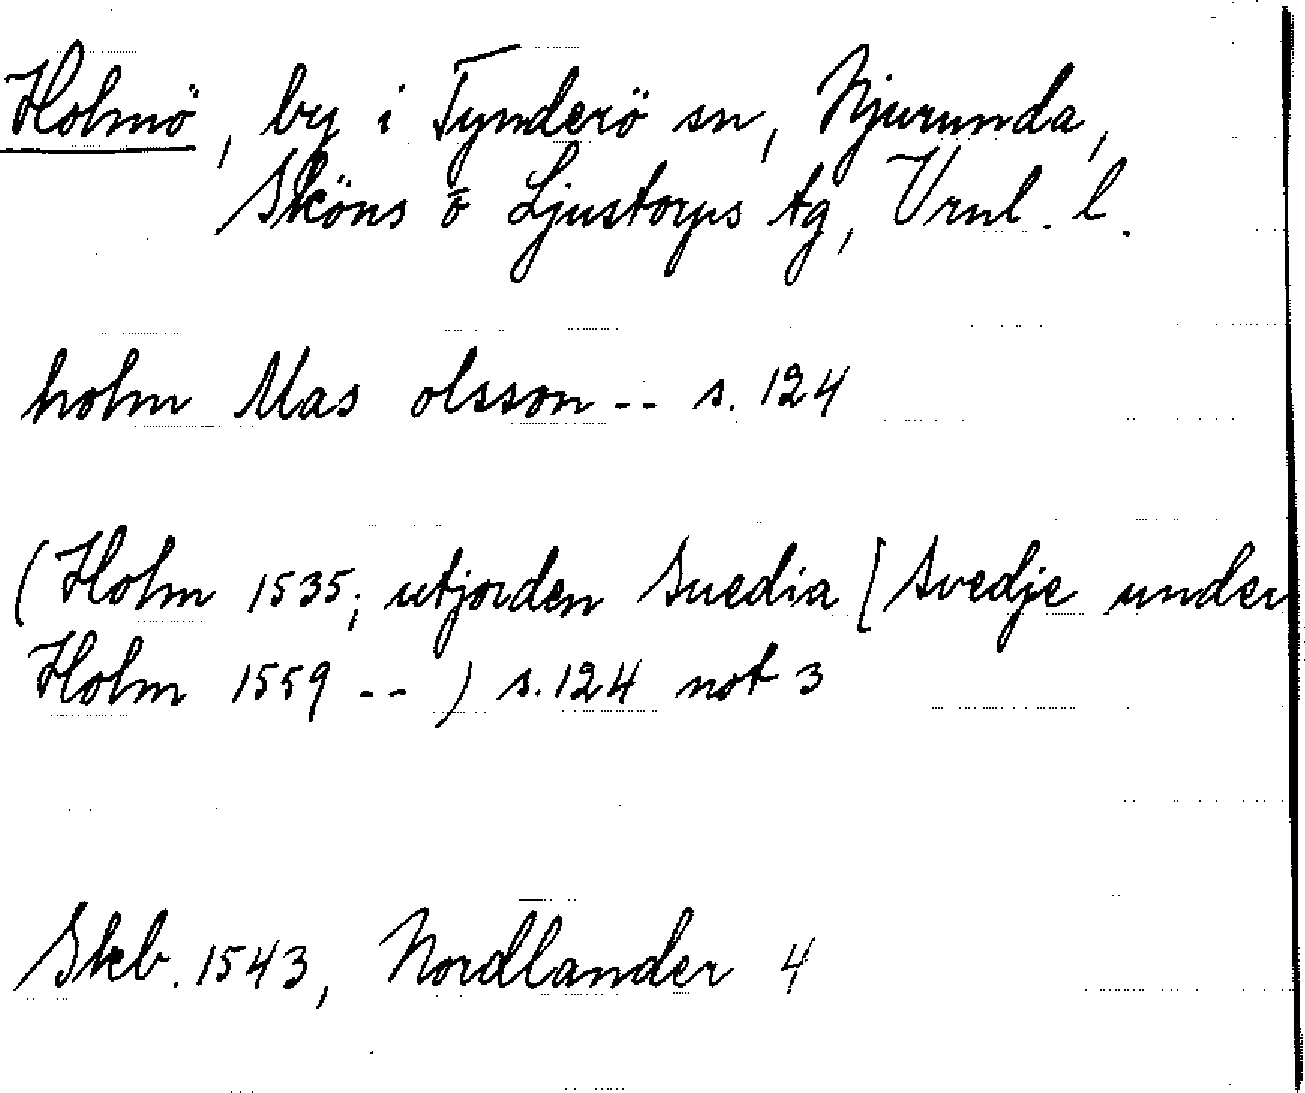 Holmö, by i Tynderö sn, Njurunda,
Sköns o Ljustorps tg, Vrnl. l.
holm Mas olsson -- s. 124
(Holm 1535; utjorden Suedia [Svedje under
Holm 1559 -- ) s. 124 not 3
Skb. 1543, Nordlander 4